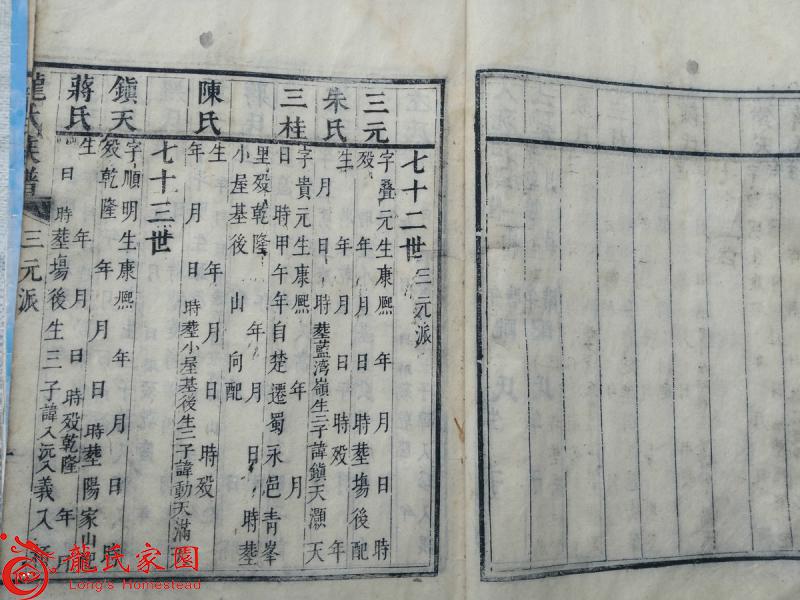 七十二世 三元派
三元 字叠元生康熙 年 月 日 時
殁 年 月 日 時葬塲後配
朱氏 生 月 日 時葬藍湾嶺生二子諱鎮天灝天
三桂 字貴元生康熙 年 月
日 時甲午年自楚遷蜀永邑青峯
里殁乾隆 年 月 日 時葬
小屋基後 山 向配
陳氏 生 年 月 日 時殁
年 月 日 時葬小屋基後生二子諱動天滿
七十三世
鎮天 字順明生康熙 年 月 日 時
殁乾隆 年 月 日 時葬陽家山
蔣氏 生 年 月 日 時殁乾隆 年 月
日 時葬塲後生三子諱入沅入義入
龍氏族譜 三元派
龍氏家園
Long's Homestead